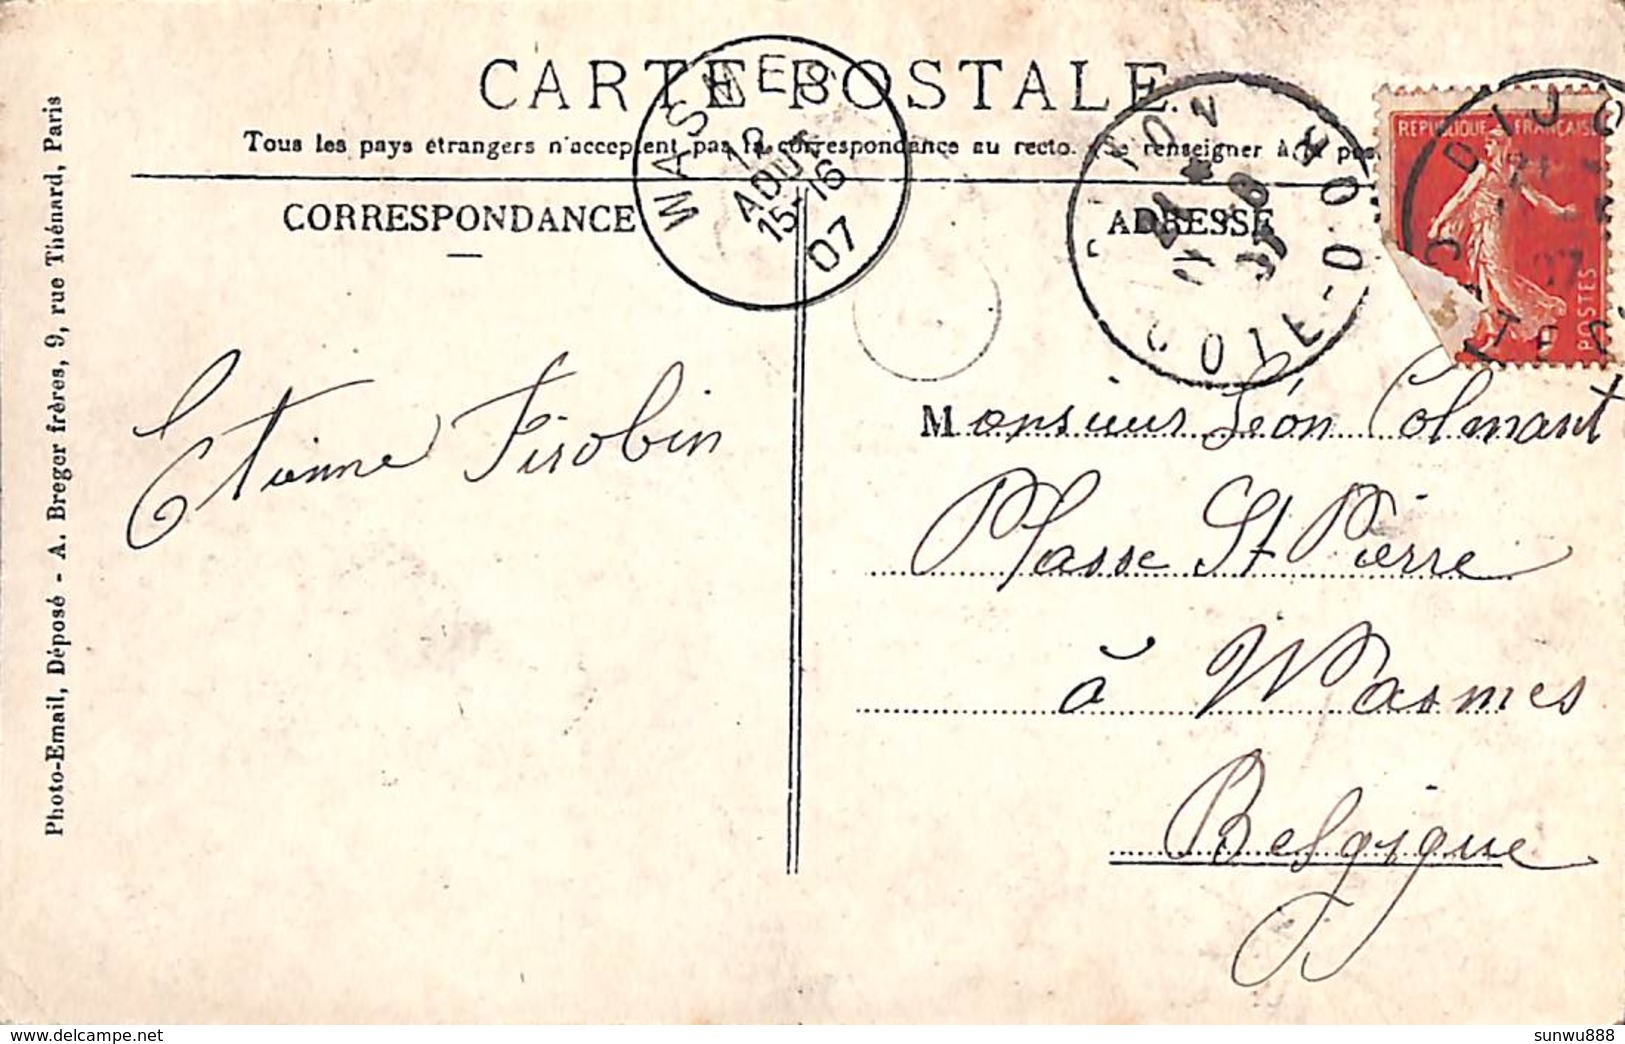 CARTE POSTALE
Tous les pays étrangers n'acceptent pas la correspondance au recto. (Se renseigner à la
CORRESPONDANCE
ADRESSE
WASMES
12
AOUT
15-16
07
DIJON
COTE-D'OR
REPUBLIQUE FRANÇAISE
POSTES
DIJON
Etienne
Monsieur Léon Colmant
Plasse St Pierre
à Wasmes
Belgique
Photo-Email, Déposé - A. Breger frères, 9, rue Thénard, Paris
sunwu888